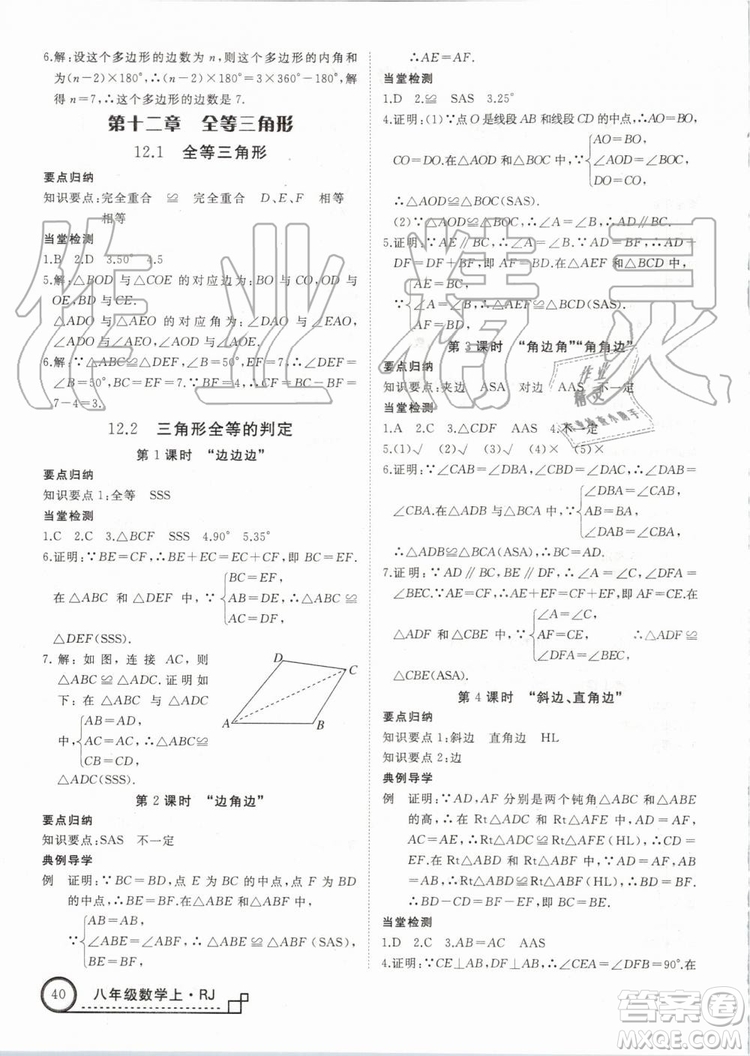 6.解:设这个多边形的边数为 n,则这个多边形的内角和
为(n-2)×180°,∴(n-2)×180°=3×360°-180°,解
得 n=7,∴这个多边形的边数是 7.
第十二章 全等三角形
12.1 全等三角形
要点归纳
知识要点:完全重合 ≌ 完全重合 D、E、F 相等
相等
当堂检测
1.B 2.D 3.50° 4.5
5.解:△BOD 与△COE 的对应边为:BO 与 CO,OD 与
OE,BD 与 CE.
△ADO 与△AEO 的对应角为:∠DAO 与∠EAO,
∠ADO 与∠AEO,∠AOD 与∠AOE.
6.解:∵△ABC≌△DEF,∠B=50°,BC=7,∴∠DEF
=∠B=50°,BC=EF=7,∴CF=BC-BF=
7-4=3.
12.2 三角形全等的判定
第 1 课时 “边边边”
要点归纳
知识要点 1:全等 SSS
当堂检测
1.C 2.C 3.△BCF SSS 4.90° 5.35°
6.证明:∵BE=CF,∴BE+EC=EC+CF,即 BC=EF.
BC=EF,
在△ABC 和△DEF 中,∵ AB=DE, ∴△ABC≌
AC=DF,
△DEF(SSS).
7.解:如图,连接 AC,则
△ABC≌△ADC.证明如
下:在△ABC 与△ADC
AB=AD,
中,AC=AC, ∴△ABC≌
CB=CD,
△ADC(SSS).
D
C
A
B
第 2 课时 “边角边”
要点归纳
知识要点:SAS 不一定
典例导学
例 证明:∵BC=BD,点 E 为 BC 的中点,点 F 为 BD
的中点,∴BE=BF.在△ABE 和△ABF 中,
AB=AB,
∵ ∠ABE=∠ABF, ∴△ABE≌△ABF(SAS),
BE=BF,
40 八年级数学上·RJ
∴AE=AF.
当堂检测
1.D 2.≌ SAS 3.25°
4.证明:(1)∵点 O 是线段 AB 和线段 CD 的中点,∴AO=BO,
AO=BO,
CO=DO.在△AOD 和△BOC 中,∵ ∠AOD=∠BOC,
CO=DO,
∴△AOD≌△BOC(SAS).
(2)∵△AOD≌△BOC,∴∠A=∠B,∴AD∥BC.
5.证明:∵AE∥BC,∴∠A=∠B.∵AD=BF,
∴AF=DB.在△AEF 和△BCD 中,
AE=BC,
∵ ∠A=∠B, ∴△AEF≌△BCD(SAS).
AF=BD,
第 3 课时 “角边角”“角角边”
要点归纳
知识要点:夹边 ASA 对边 AAS 不一定
当堂检测
1.A 2.C 3.△CDF AAS 4.不一定
5.(1)√ (2)√ (3)√ (4)× (5)×
6.证明:∵∠CAB=∠DBA,∠CBD=∠DAC,∴∠DBA=
∠DBA=∠CAB,
∠CBA.在△ADB 与△BCA 中,∵ AB=BA,
∠DAB=∠CBA,
∴△ADB≌△BCA(ASA),∴BC=AD.
7.证明:∵AD∥BC,DF∥BE,∴∠A=∠C,∠DFE=
∠BEC.∵AE=CF,∴AE+EF=CF+EF,即 AF=CE.
∠A=∠C,
在△ADF 和△CBE 中,∵ AF=CE, ∴△ADF≌
∠DFA=∠BEC,
△CBE(ASA).
第 4 课时 “斜边、直角边”
要点归纳
知识要点 1:斜边 直角边 HL
知识要点 2:边
典例导学
例 证明:∵AD,AF 分别是两个钝角△ABC 和△ABE
的高,∴在 Rt△ADC 和 Rt△AFE 中,∵AD=AF,
AC=AE,∴Rt△ADC≌Rt△AFE(HL),∴CD=
EF.在 Rt△ABD 和 Rt△ABF 中,∵AD=AF,
AB=AB,∴Rt△ABD≌Rt△ABF(HL),∴BD=BF.
∴BD-CD=BF-EF,即 BC=BE.
当堂检测
1.D 2.C 3.AO=AO AAS
4.证明:∵CE⊥AB,DF⊥AB,∴∠AEC=∠BFD=90°.在
作业精灵
答案圈
MXQE.COM